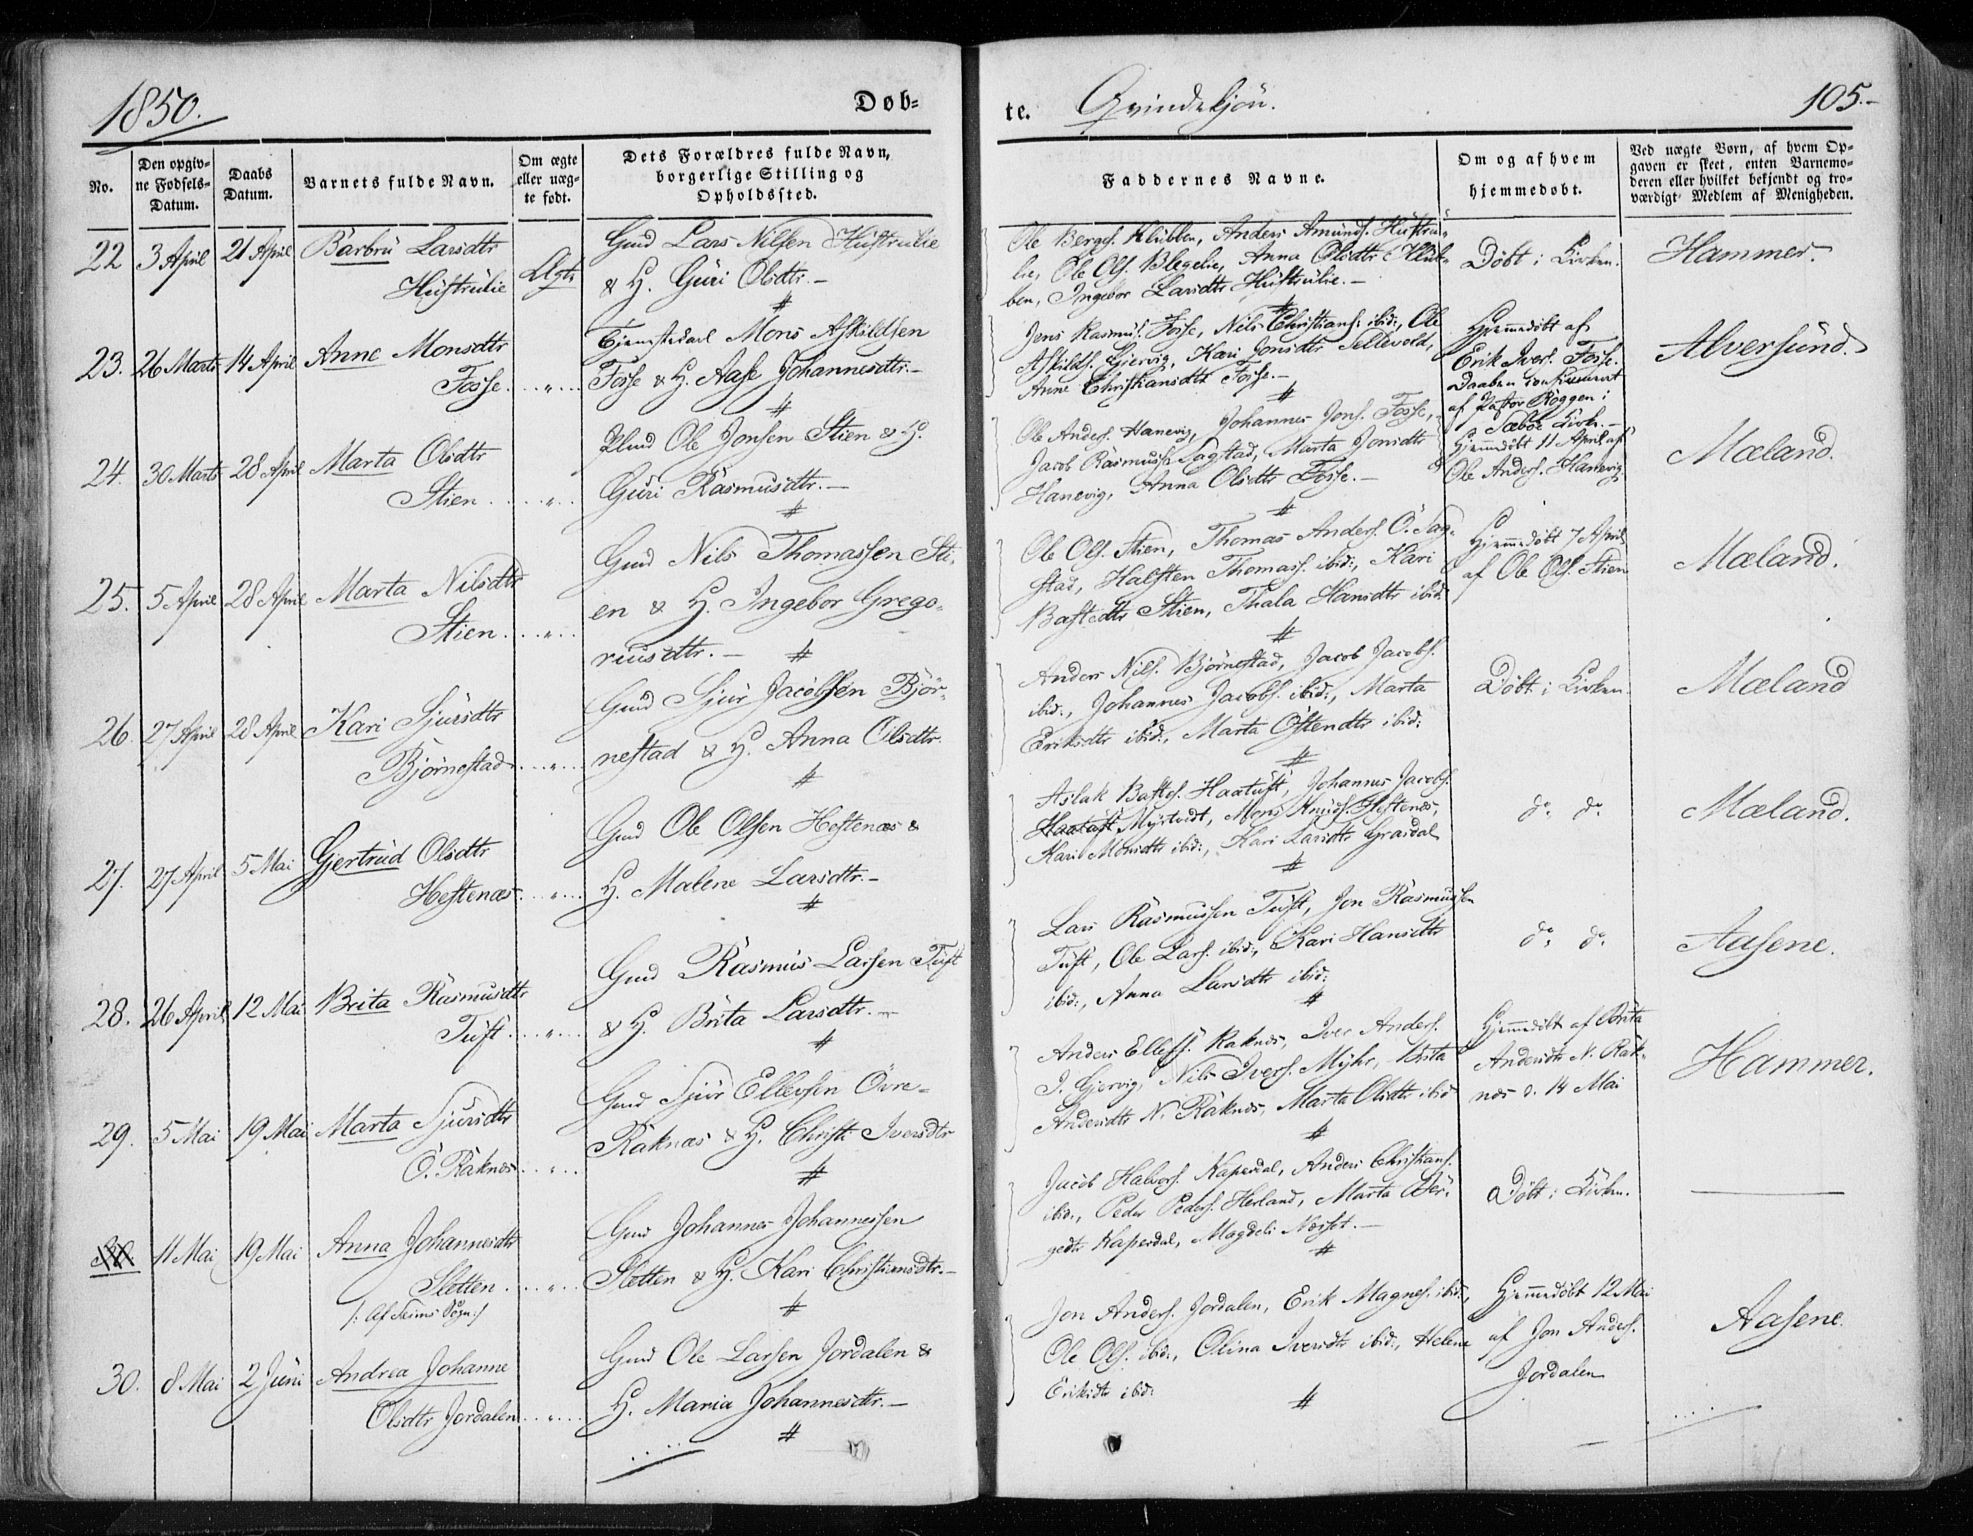 1850.
Døb-
te. Qvindekjön.
105.-
No.
Den opgiv-
ne Fødsels-
Datum.
Daabs
Datum.
Barnets fulde Navn.
Om ægte
eller uæg-
te født.
Dets Forældres fulde Navn,
borgerlige Stilling og
Opholdssted.
Faddernes Navne.
Om og af hvem
hjemmedøbt.
Ved uægte Børn, af hvem Op-
gaven er skeet, enten Barnemo-
deren eller hvilket bekjendt og tro-
værdigt Medlem af Menigheden.
22 3 April 21 April Barbru Larsdtr
Hustrulie Ægte
Gmd Lars Nilsen Hustrulie
& H. Guri Olsdtr.-
Ole Bergs. Klubben, Anders Amunds. Hustru-
lie, Ole Ols. Blegelie, Anna Olsdtr Klub-
ben, Ingebor Larsdtr Hustrulie.-
Döbt i Kirken.
Hammer.
23. 26 Marts 14 April Anne Monsdtr
Fosse. "
Tjenestekarl Mons Askildsen
Fosse & H. Aase Johannesdtr.-
Jens Rasmus. Fosse, Nils Christians. ibid:, Ole
Askilds. Gjervig, Kari Jonsdtr Sellevold,
Anne Christiansdtr Fosse.-
Hjemmedöbt af
Erik Ivers. Fosse.
Daaben confirmeret
af Pastor Roggen i
Sæbö Kirke.-
Alversund.
24. 30 Marts 28 April Marta Olsdtr
Stien "
Ole Jonsen Stien & H.
Guri Rasmusdtr.-
Ole Anders. Hanevig, Johannes Jons. Fosse,
Jacob Rasmuss. Sagstad, Marta Jonsdtr
Hanevig, Anna Olsdtr Fosse.-
Hjemmedöbt 11 April af
Ole Anders. Hanevig
Mæland.
25. 5 April 28 April Marta Nilsdtr
Stien. "
Gmd Nils Thomassen Sti-
en & H. Ingebor Grego-
riusdtr.-
Ole Ols. Stien, Thomas Anders. Ö. Sag-
stad, Halsten Thomass. ibid:, Kari
Bastedtr Stien, Thala Hansdtr ibid:
Hjemmedöbt 7 April
af Ole Ols. Stien
Mæland.
26. 27 April 28 April Kari Sjursdtr
Björnestad "
Gmd Sjur Jacobsen Björ-
nestad & H. Anna Olsdtr.
Anders Nils. Björnestad, Jacob Jacobs.
ibid:, Johannes Jacobs. ibid:, Marta
Eriksdtr ibid:, Marta Östendtr ibid:
Döbt i Kirken.
Mæland
27. 27 April 5 Mai Gjertrud Olsdtr
Hestenæs "
Gmd Ole Olsen Hestenæs &
H. Malene Larsdtr.-
Aslak Bastes. Haatuft, Johannes Jacobs.
Haatuft Myrtvedt, Mons Knuds. Hestenæs,
Kari Monsdtr ibid:, Kari Larsdtr
do. do.
Mæland.
28. 26 April 12 Mai Brita Rasmusdtr
Tuft. "
Gmd Rasmus Larsen Tuft
& H. Brita Larsdtr.-
Lars Rasmussen Tuft, Jon Rasmussen
Tuft, Ole Lars. ibid:, Kari Hansdtr
ibid:, Anna Larsdtr ibid:
do. do.
Aasene.
29. 5 Mai 19 Mai Marta Sjursdtr
Ö. Raknæs "
Gmd Sjur Ellefsen Övre-
Raknæs & H. Christi Iversdtr
Anders Ellefs. Raknæs, Iver Anders.
I. Gjervig, Nils Ivers. Myhr, Brita
Andersdtr N. Raknæs, Marta Olsdtr ibid
Hjemmedöbt af Brita
Andersdtr N. Rak-
næs d. 14 Mai
Hammer.
30. 11 Mai 19 Mai Anna Johannesdtr
Sletten. "
/: Af Seims Sogn:/
Gmd Johannes Johannessen
Sletten & H. Kari Christiansdtr.-
Jacob Halvors. Kaperdal, Anders Christians.
ibid:, Peder Peders. Herland, Marta Bör-
gedtr Kaperdal, Magdeli Næset.-
Döbt i Kirken.
30. 8 Mai 2 Juni Andrea Johanne
Olsdtr Jordalen "
Gmd Ole Larsen Jordalen &
H. Maria Johannesdtr.-
Jon Anders. Jordalen, Erik Magnes. ibid:,
Ole Ols. ibid:, Olina Iversdtr ibid:, Helene
Eriksdtr ibid:
Hjemmedöbt 12 Mai
af Jon Anders.
Jordalen
Aasene.